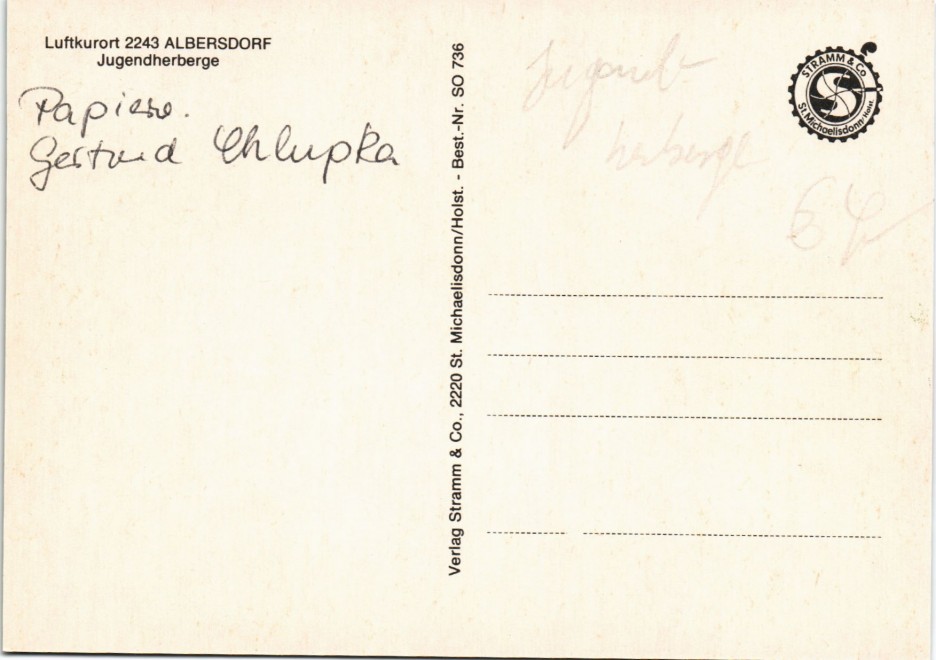 Luftkurort 2243 ALBERSDORF
Jugendherberge
Gertrud Chlupka
Verlag Stramm & Co., 2220 St. Michaelisdonn/Holst. - Best.-Nr. SO 736
Jugend-
herberge
STRAMM & Co
St. Michaelisdonn-Holst.